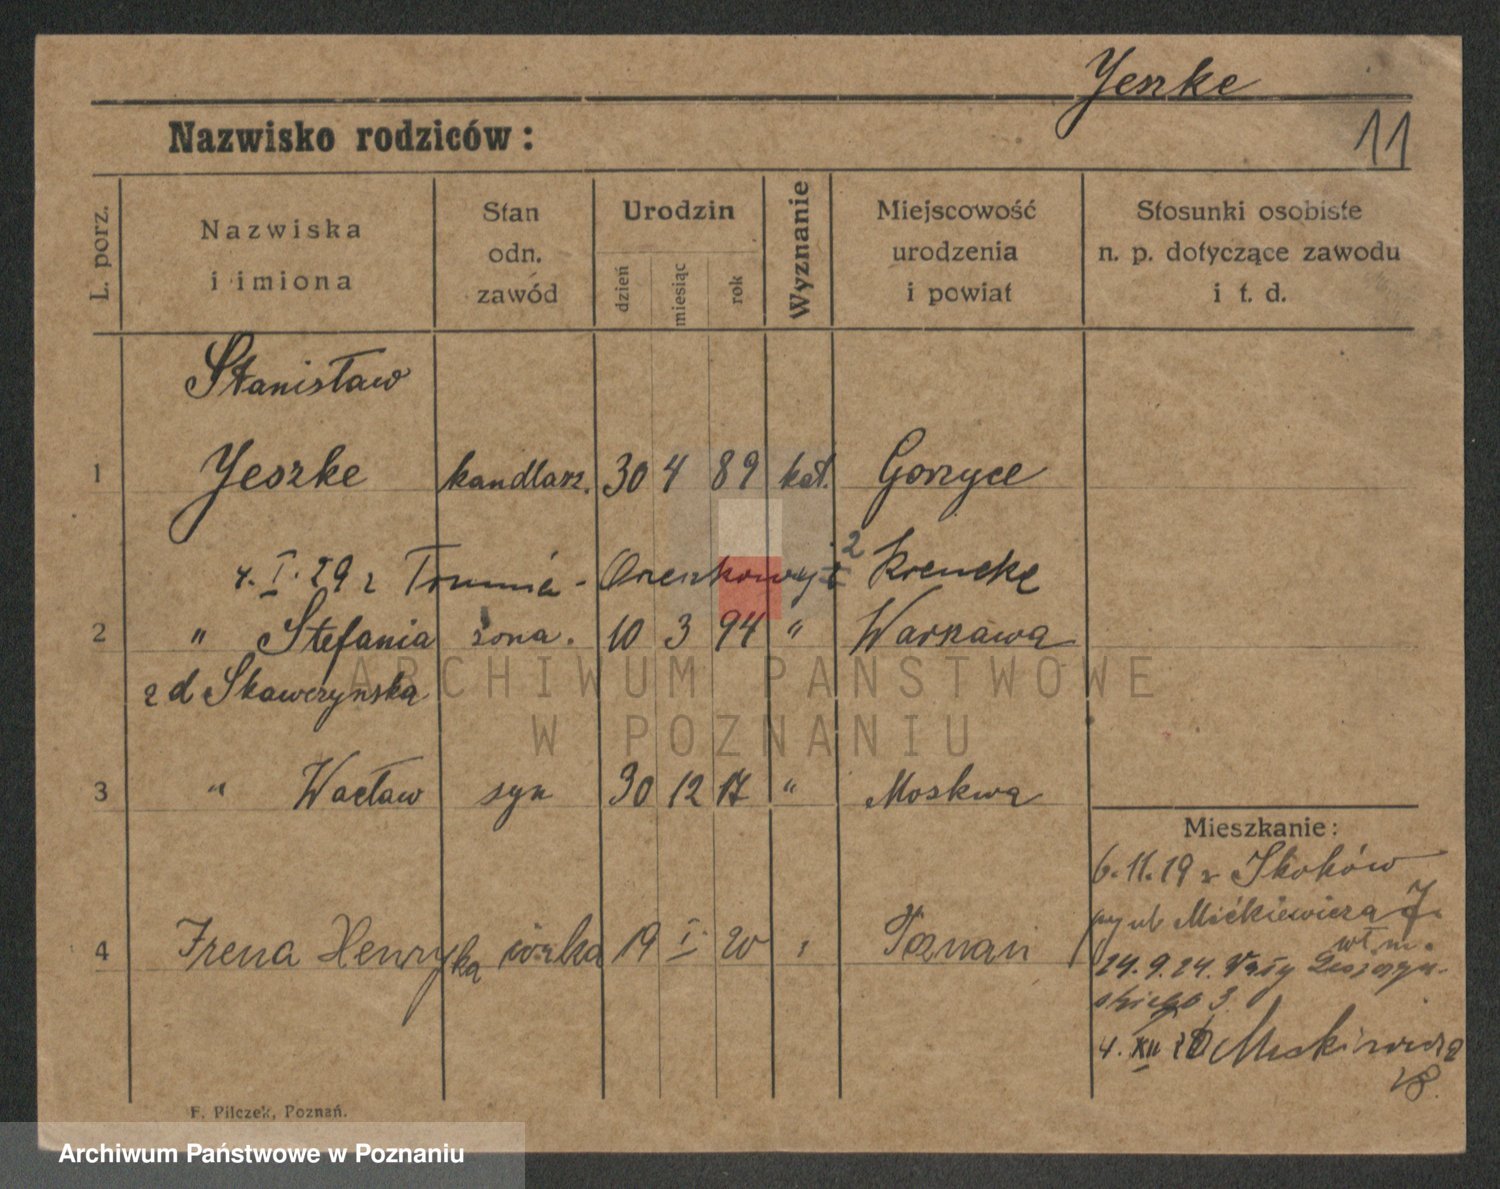 Yeszke
11
Nazwisko rodziców:
L. porz.
Nazwiska
i imiona
Stan
odn.
zawód
Urodzin
dzień
miesiąc
rok
Wyznanie
Miejscowość
urodzenia
i powiat
Stosunki osobiste
n. p. dotyczące zawodu
i t. d.
Stanisław
1 Yeszke handlarz. 30 4 89 kat. Gorzyce
4. I. 29 z
2 " Stefania żona. 10 3 94 " Warszawa
z d Skawczyńska
3 " Wacław syn 30 12 17 " Moskwa
Mieszkanie:
6.11.19 z Skoków
4 Irena Henryka córka 19 I. 20 " Poznań
24.9.24. Wały
3.
4. XII
18.
F. Pilczek, Poznań.
ARCHIWUM PAŃSTWOWE
W POZNANIU
Archiwum Państwowe w Poznaniu